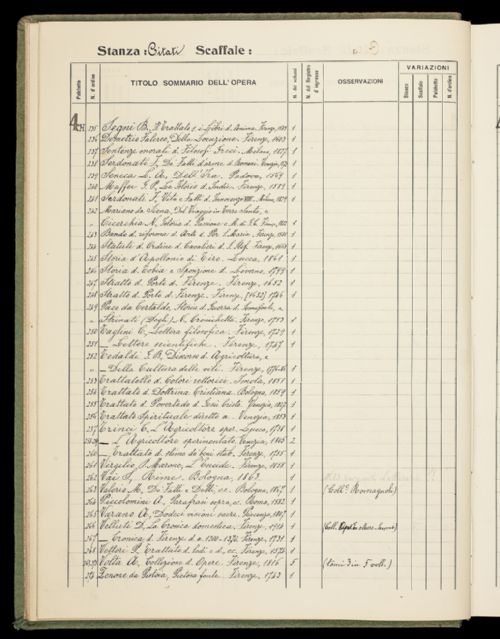 Stanza: Citati Scaffale:
VARIAZIONI
Palchetto N. d'ordine TITOLO SOMMARIO DELL'OPERA N. dei volumi N. del Registro d'ingresso OSSERVAZIONI Stanza Scaffale Palchetto N. d'ordine
235 Segni B., Il Trattato s. i Libri d. Anima, Firenze, 1
236 Demetrio Falereo, Della Locuzione. Firenze, 1
237 Sentenze morali d. Filosof. Greci. Milano, 1
238 Serdonati F., De' Fatti d'arme d. Romani. Venezia, 1
239 Seneca L. A., Dell'Ira. Padova, 1569 1
240 Maffei G. P., Le Istorie d. Indie. Firenze, 1589 1
241 Serdonati F., Vita e Fatti d. Innocenzo VIII. Milano, 1829 1
242 Mariano da Siena, Del Viaggio in Terra Santa, e
" Cicerchia N., Istoria d. Passione e M. di G. C. 1
243 Bando d. riforma d. Arte d. Por S. Maria. Firenze, 1
244 Statuti d. Ordine d. Cavalieri d. S. Stef. Firenze, 1
245 Storia d'Apollonio di Tiro. Lucca, 1861 1
246 Storia d. Tobia e Sposizione d. Livorno, 1799 1
247 Stratto d. Porte di Firenze. Firenze, 1652 1
248 Stratto d. Porte d. Firenze. Firenze, (1652) 1766 1
249 Pace da Certaldo, Storia d. Guerra d. Semifonte, e
" Strinati (Degli) N., Cronichetta. Firenze, 1753 1
250 Taglini C., Lettera filosofica. Firenze, 1729 1
251 — Lettere scientifiche. Firenze, 1747 1
252 Tedaldi G. B., Discorso d. Agricoltura, e
" — Della Cultura delle viti. Firenze, 1
253 Trattatello d. Colori rettorici. Imola, 1851 1
254 Trattato d. Dottrina Cristiana. Bologna, 1859 1
255 Trattato d. Povertade d. Gesù Cristo. Venezia, 1
256 Trattato Spirituale diretto a. Venezia, 1
257 Trinci C., L'Agricoltore sper. Lucca, 1738 1
— L'Agricoltore sperimentato. Venezia, 2
260 —, Trattato d. stime de' beni stab. Firenze, 1755 1
261 Virgilio P. Marone, L'Eneide. Firenze, 1
262 Vai S., Rime. Bologna, 1863 1
263 Valerio M., De' Fatti e Detti, ec. Bologna, 1867 1 (Coll.e Romagnoli)
264 Piccolomini A., Parafrasi sopra, ec. 1
265 Varano A., Dodici visioni sacre. Piacenza, 1807 1
266 Velluti D., La Cronica domestica. Firenze, 1914 1
267 — Cronica d. Firenze d. a. 1300-1370. Firenze, 1731 1
268 Vettori P., Trattato d. lodi e d., ec. Firenze, 1
Volta A., Collezione d. Opere. Firenze, 1816 5 (tomi 3 in 5 voll.)
274 Zenone da Pistoia, Pietosa fonte. Firenze, 1743 1